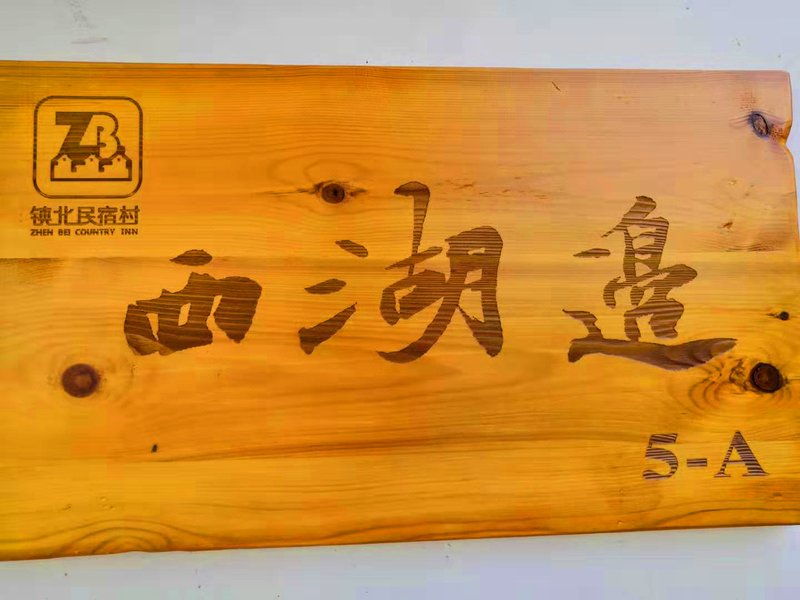 ZB
镇北民宿村
ZHEN BEI COUNTRY INN
西湖邊
5-A